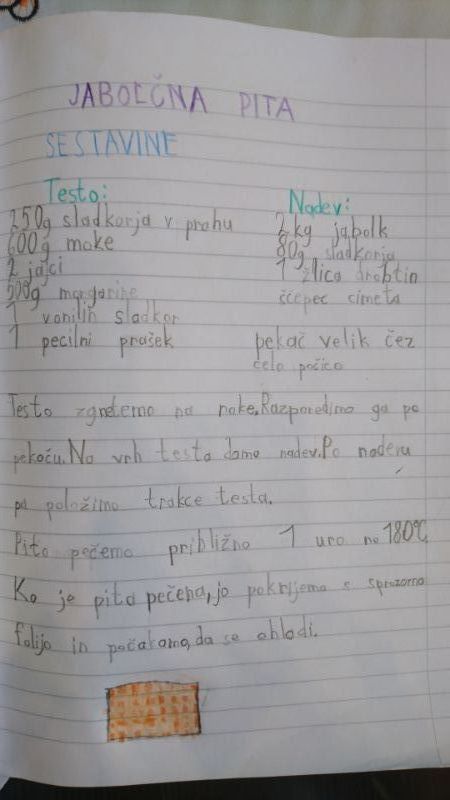 JABOLČNA PITA
SESTAVINE
Testo:
250g sladkorja v prahu
600g moke
2 jajci
500g margarine
1 vanilin sladkor
1 pecilni prašek
Nadev:
2 kg jabolk
80g sladkorja
1 žlica drobtin
ščepec cimeta
pekač velik čez
celo pečico
Testo zgnetemo na roke. Razporedimo ga po
pekaču. Na vrh testa damo nadev. Po nadevu
pa položimo trakce testa.
Pito pečemo približno 1 uro na 180°C
Ko je pita pečena, jo pokrijemo s
folijo in počakamo, da se ohladi.